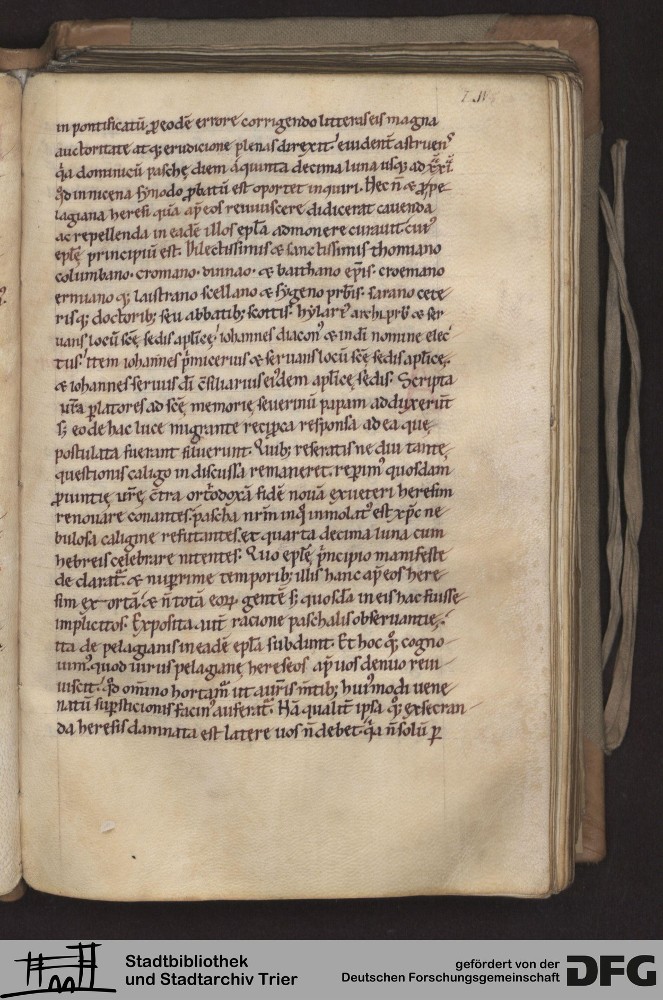 in pontificatū, ꝓ eodē errore corrigendo litteras eis magna
auctoritate atq; erudicione plenas direxit. euident̄ astruens
q̓a dominicū paschę diem a quinta decima luna usq; ad .xxi.
qd in nicena synodo ꝓbatū est oportet inquiri. Nec n̄ & ꝓ pe
lagiana heresi quā ap̄ eos reuiuiscere didicerat cauenda
ac repellenda in eadē illos epl̄a admonere curauit. cuiꝰ
epl̄ę principiū est. Dilectissimis & sanctissimis thomiano
columbano. cromano. dinnao. & baithano ep̄is. croemano
ermiano q; laistrano scellano & sygeno pr̄bis. sarano cete
risq; doctorib; seu abbatib; scottis. hylariꝰ archipr̄b & ser
uans locū scē sedis apl̄icę. iohannes diaconꝰ & in dī nomine elec
tus. item iohannes p̓micerius & seruans locū scē sedis apl̄icę.
& iohannes seruus dī c̄siliarius eiꝰdem apl̄icę sedis. Scripta
quę ꝑlatores ad scē memorię seuerinū papam adduxerūt
s; eo de hac luce migrante recip̓ca responsa ad ea quę
postulata fuerant siluerunt. Quib; reseratis ne diu tantę
questionis caligo indiscussa remaneret. reperimꝰ quosdam
ꝓuintię ur̄ę c̄tra ortodoxā fidē nouā ex ueteri heresim
renouare conantes. pascha nr̄m in q̊ inmolatꝰ est xp̄c ne
bulosa caligine refutantes. ex quarta decima luna cum
hebreis celebrare nitentes. Quo epl̄ę p̓ncipio manifeste
de claratꝰ. & nuperrime temporib; illis hanc ap̄ eos here
sim exortā. & n̄ totā eoꝝ gentē s; quosdā in eis hac fuisse
implicitos. Exposita aut̄ racione paschalis obseruantię.
ita de pelagianis in eadē epl̄a subdunt. Et hoc q̊q; cogno
uimꝰ quod uirus pelagianę hereseos ap̄ uos denuo reui
uiscit. qd om̄ino hortamꝰ ut a ur̄is m̄tib; huiꝰmodi uene
natū suꝑsticionis facinꝰ auferatꝰ. Nā qualit̄ ipsa q̊q; execran
da heresis damnata est latere uos n̄ debet. q̓a n̄ solū ꝑ
Stadtbibliothek
und Stadtarchiv Trier
gefördert von der
Deutschen Forschungsgemeinschaft
DFG